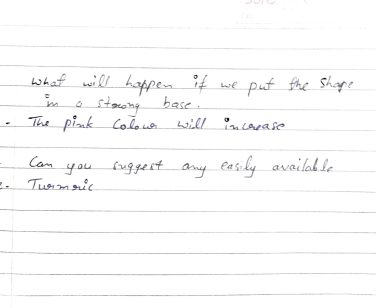 what will happen if we put the shape
in a strong base.
- The pink Colour will increase
- Can you suggest any easily available
- Turmeric